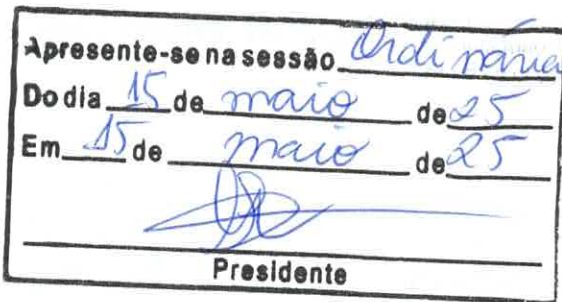 Apresente-se na sessão Ordinária
Do dia 15 de maio de 25
Em 15 de maio de 25
Presidente